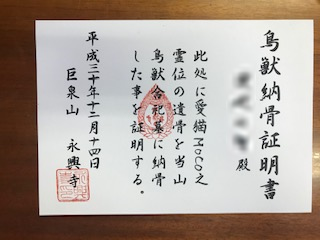 鳥獣納骨証明書
殿
此処に愛猫MOCO之
霊位の遺骨を当山
鳥獣合祀墓に納骨
した事を証明する。
平成三十年十二月十四日
巨泉山 永興寺